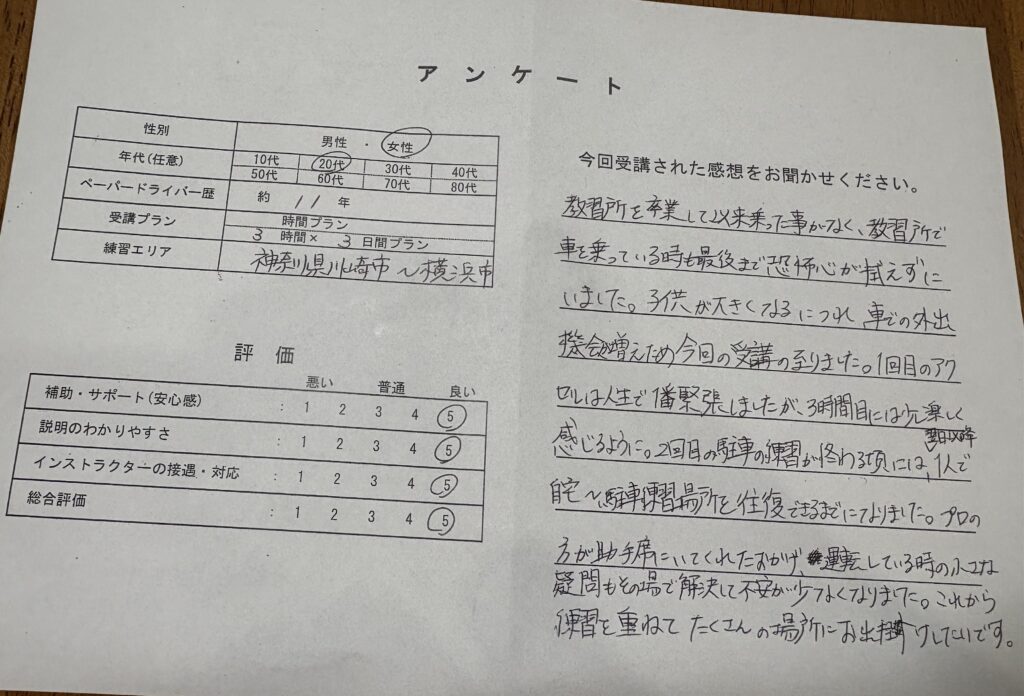 アンケート
性別 男性 ・ 女性
年代(任意) 10代 20代 30代 40代
50代 60代 70代 80代
ペーパードライバー歴 約 11 年
受講プラン 時間プラン
3 時間× 3 日間プラン
練習エリア 神奈川県川崎市〜横浜市
評価
悪い 普通 良い
補助・サポート(安心感) : 1 2 3 4 5
説明のわかりやすさ : 1 2 3 4 5
インストラクターの接遇・対応 : 1 2 3 4 5
総合評価 : 1 2 3 4 5
今回受講された感想をお聞かせください。
教習所を卒業して以来乗った事がなく、教習所で
車を乗っている時も最後まで恐怖心が拭えずに
いました。子供が大きくなるにつれ車での外出
機会増えため今回の受講の至りました。1回目のアク
セルは人生で1番緊張しましたが、3時間目には少し楽しく
感じるように。2回目の駐車の練習が終わる頃には、翌日以降1人で
自宅〜駐車練習場所を往復できるまでになりました。プロの
方が助手席にいてくれたおかげ、運転している時の小さな
疑問もその場で解決して不安が少なくなりました。これから
練習を重ねてたくさんの場所にお出掛けしたいです。